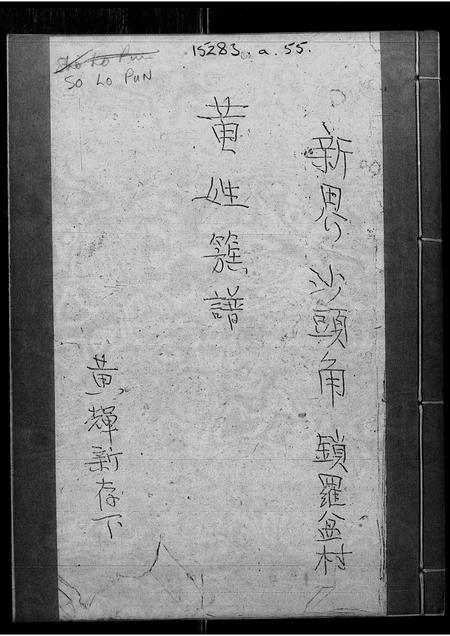 15283. a. 55.
Sho Lo Pun
SO LO PUN
新界 沙頭角 鎖羅盆村
黄姓簇譜
黄輝新存下